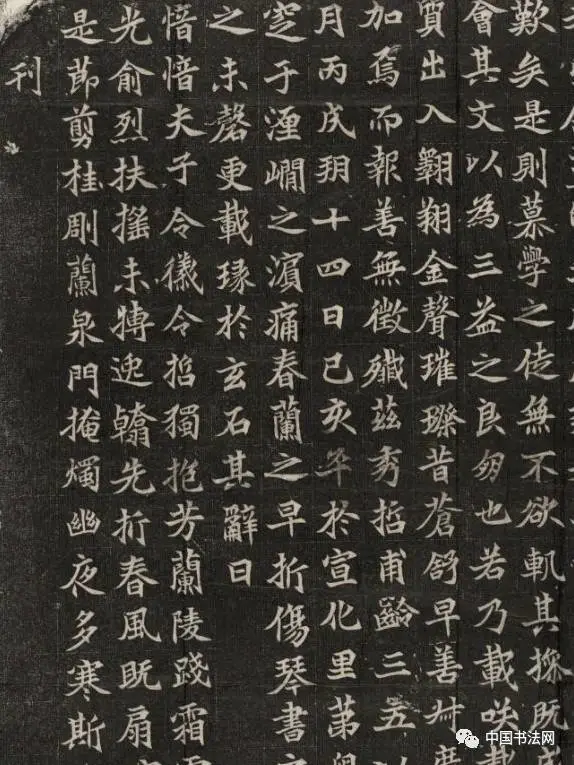 歎矣是則慕學之徒無不欲軌其操既
會其文以為三益之良朋也若乃載咲
質出入翱翔金聲璀璨昔蒼舒早善
加焉而報善無徵殲茲秀哲甫齡三五以
月丙戌朔十四日己亥卒於宣化里第
窆于瀍㵎之濱痛春蘭之早折傷琴書
之未罄更載於玄石其辭曰
愔愔夫子令徽令哲獨抱芳蘭陵踐霜
光俞烈扶搖未先折春風既扇
是節剪桂刖蘭泉門掩燭幽夜多寒斯
刊
中国书法网